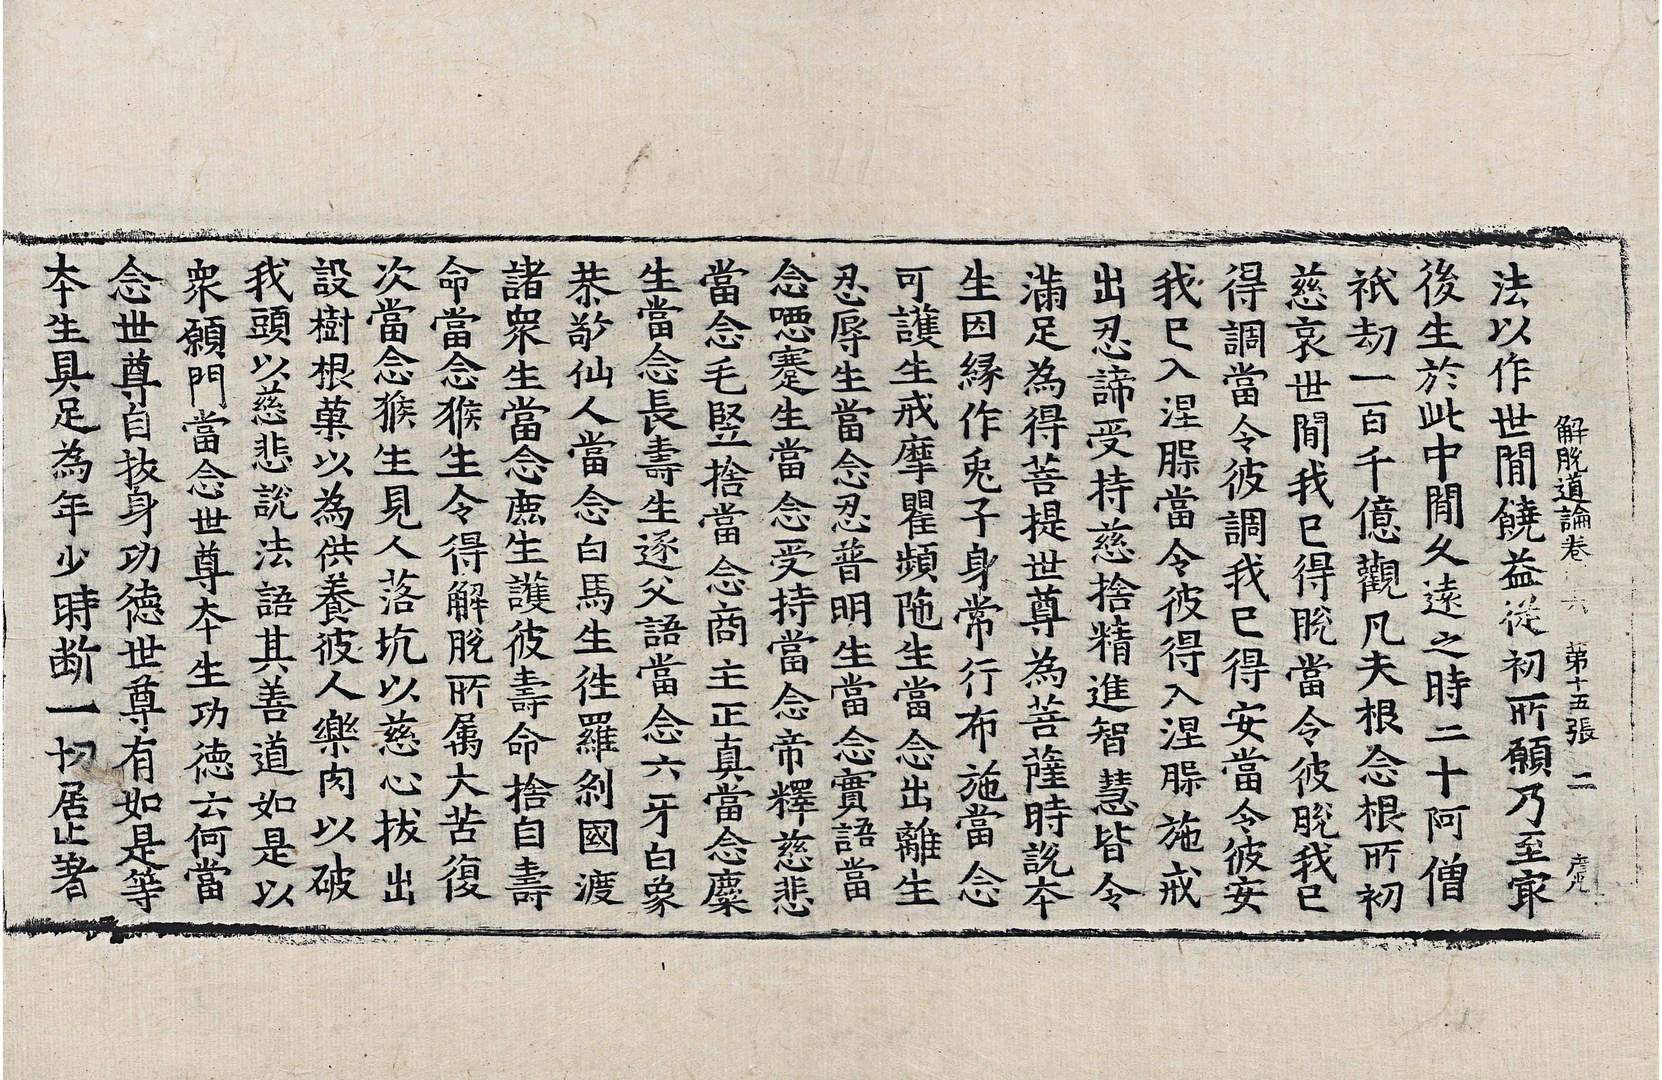 解脫道論卷六 第十五張 二 彦
法以作世間饒益從初所願乃至㝡
後生於此中間久遠之時二十阿僧
祇劫一百千億觀凡夫根念根所初
慈哀世間我已得脫當令彼脫我已
得調當令彼調我已得安當令彼安
我已入涅槃當令彼得入涅槃施戒
出忍諦受持慈捨精進智慧皆令
滿足為得菩提世尊為菩薩時說夲
生因緣作兎子身常行布施當念
可護生戒摩瞿頻陁生當念出離生
忍辱生當念忍普明生當念實語當
念啞躄生當念受持當念帝釋慈悲
當念毛竪捨當念商主正真當念麋
生當念長壽生逐父語當念六牙白象
恭敬仙人當念白馬生徃羅剎國渡
諸衆生當念鹿生護彼壽命捨自壽
命當念猴生令得解脫所属大苦復
次當念猴生見人落坑以慈心拔出
設樹根菓以為供養彼人樂肉以破
我頭以慈悲說法語其善道如是以
衆願門當念世尊夲生功德云何當
念世尊自拔身功德世尊有如是等
夲生具足為年少時断一切居止著